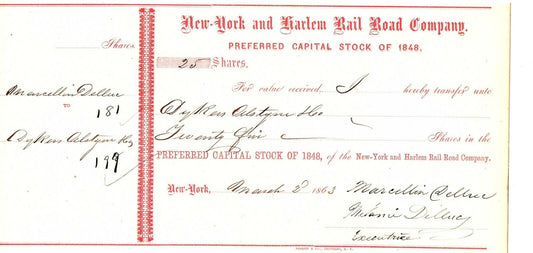 Shares.
Marcellin Delluc
TO
181
Dykers Alstyne & Co
199
New-York and Harlem Rail Road Company.
PREFERRED CAPITAL STOCK OF 1848.
25 Shares.
For value received, I hereby transfer unto
Dykers Alstyne & Co
Twenty five Shares in the
PREFERRED CAPITAL STOCK OF 1848, of the New-York and Harlem Rail Road Company.
New-York, March 2d 1863
Marcellin Delluc
Delluc
Executrice